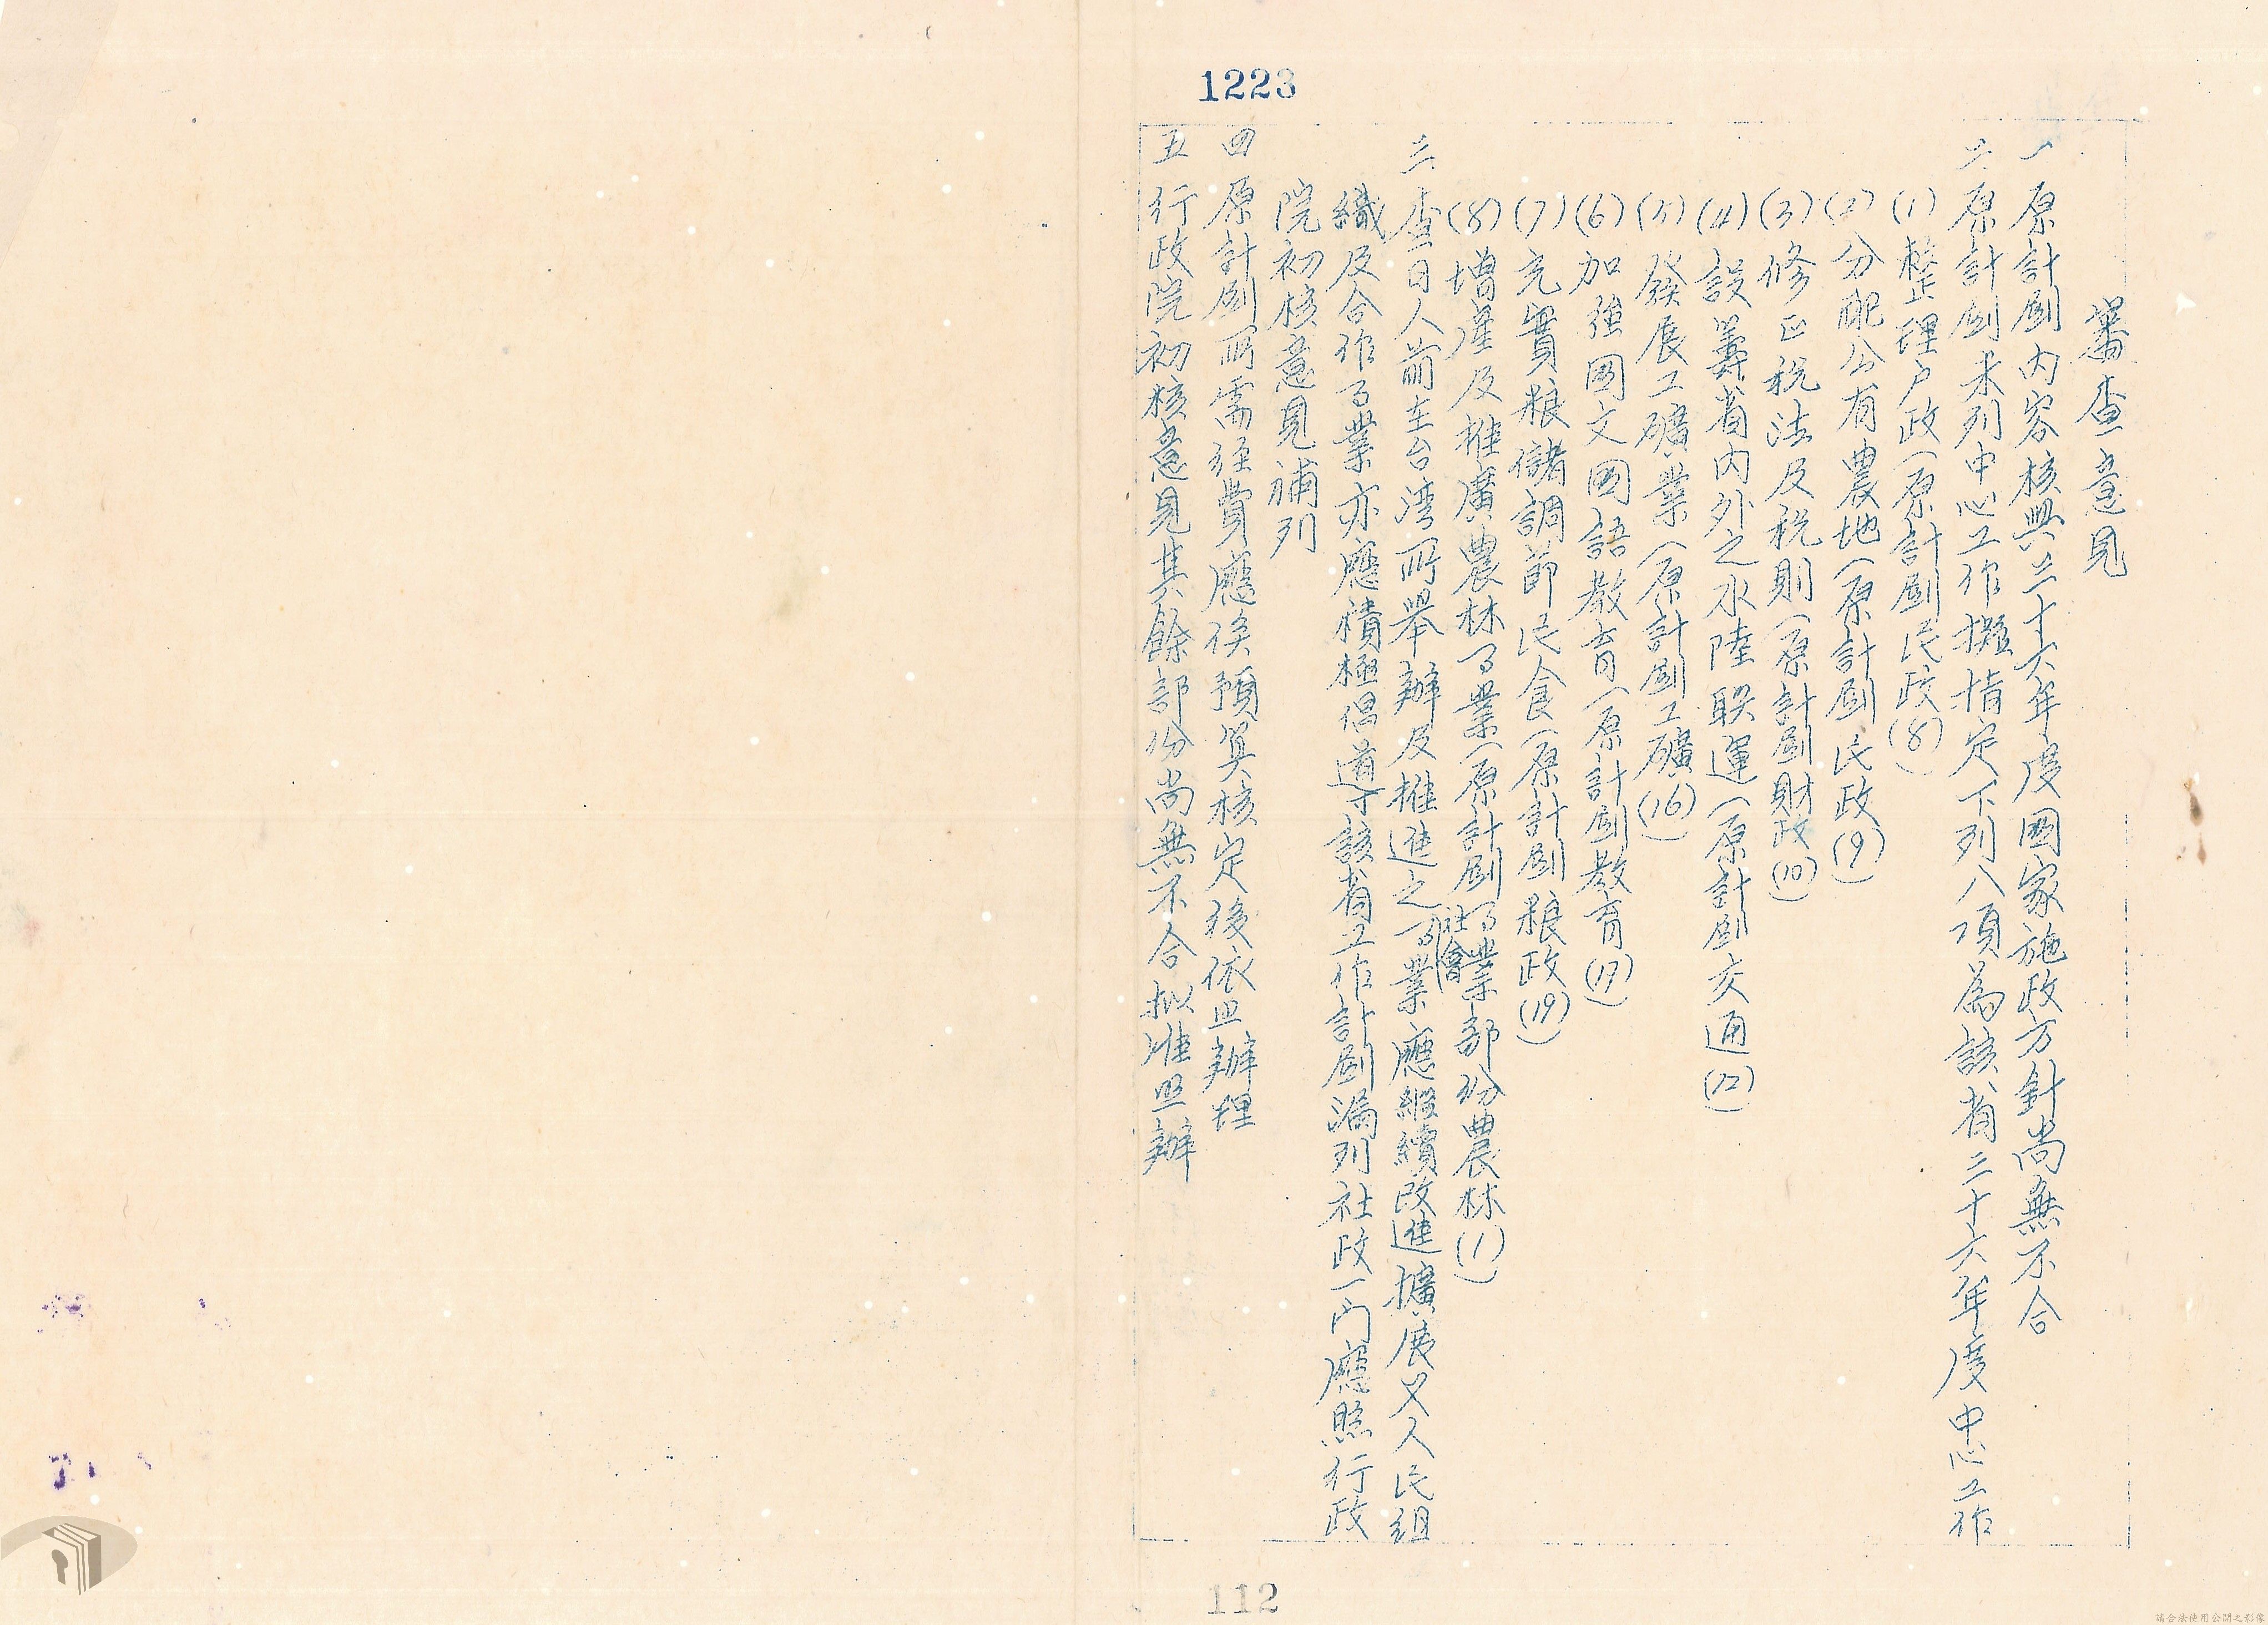 1223
審查意見
一 原計劃內容核與三十六年度國家施政方針尚無不合
二 原計劃未列中心工作擬指定下列八項為該省三十六年度中心工作
(1) 整理户政(原計劃民政(8))
(2) 分配公有農地(原計劃民政(9))
(3) 修正税法及税則(原計劃財政(10))
(4) 設籌省內外之水陸联運(原計劃交通(12))
(5) 發展工礦業(原計劃工礦(16))
(6) 加強國文國語教育(原計劃教育(17))
(7) 充實粮儲調節民食(原計劃粮政(19))
(8) 增產及推廣農林事業(原計劃事業部份農林(1))
社會
三 查日人前在台湾所舉辦及推進之事業應繼續改進擴展又人民組
織及合作事業亦應積極倡導該省工作計劃漏列社政一門應照行政
院初核意見補列
四 原計劃所需經費應俟預算核定後依照辦理
五 行政院初核意見其餘部份尚無不合拟准照辦
112
請合法使用公開之影像